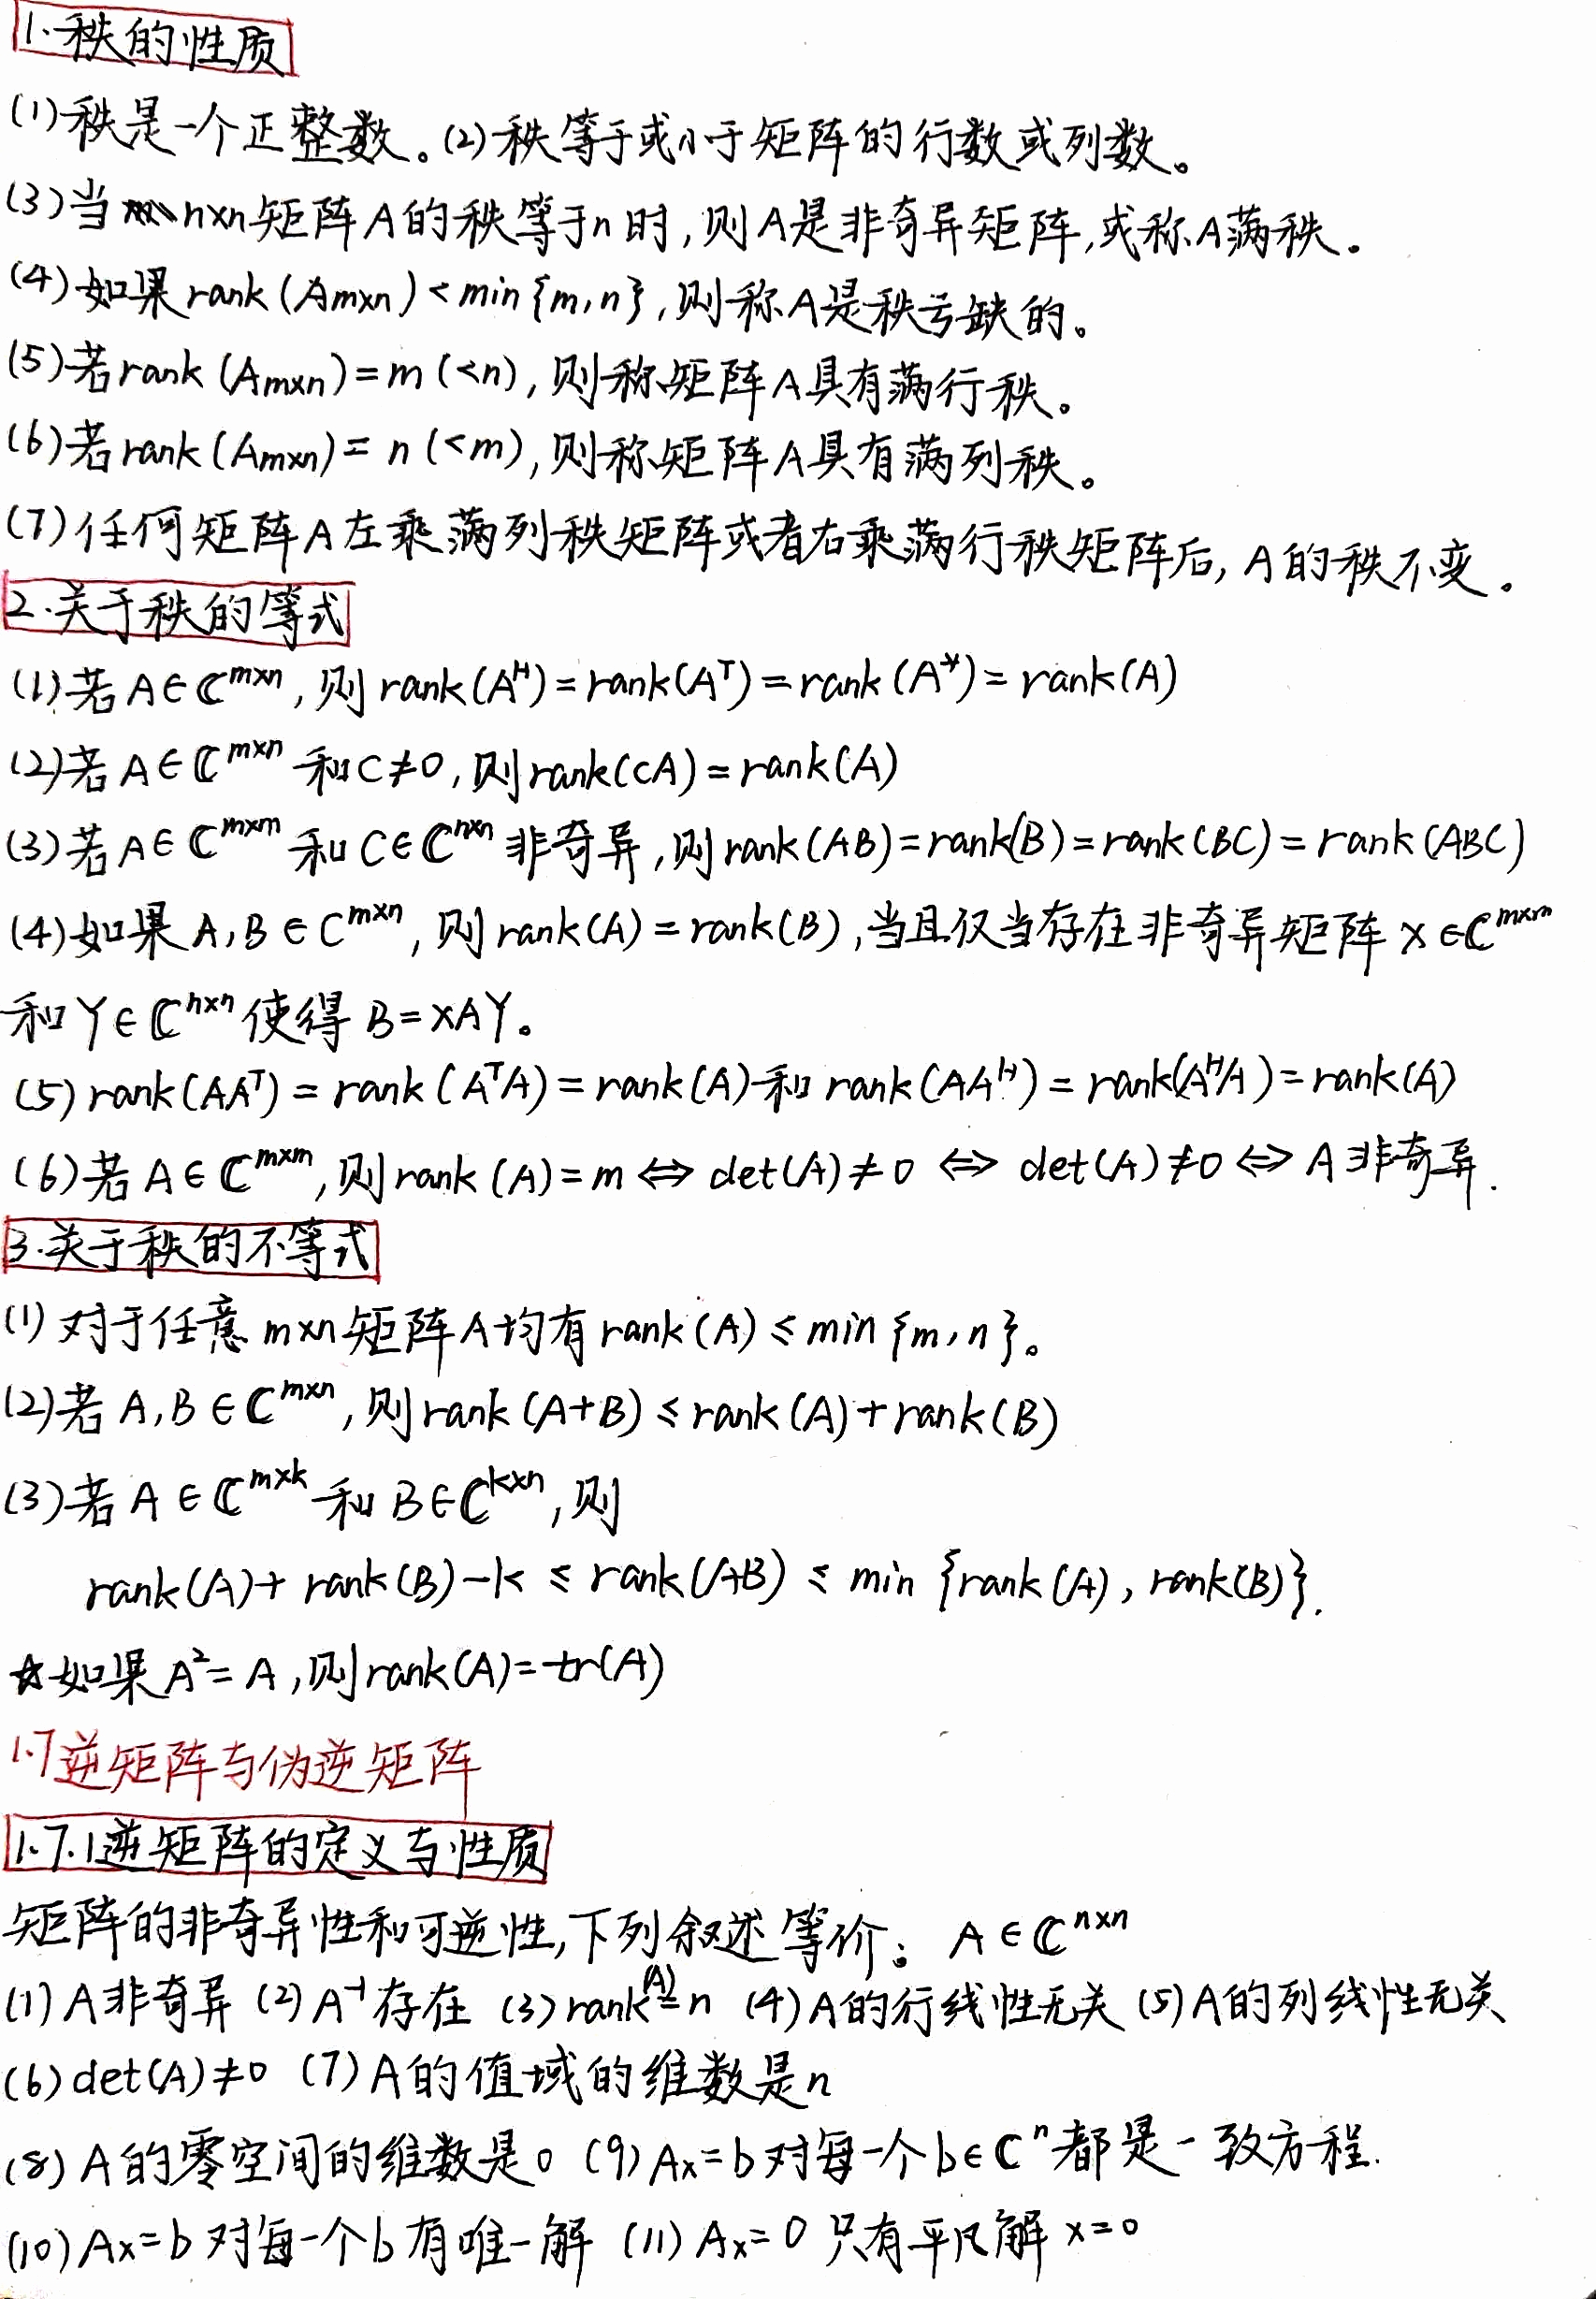 1.秩的性质
(1)秩是一个正整数。(2)秩等于或小于矩阵的行数或列数。
(3)当 n×n矩阵A的秩等于n时,则A是非奇异矩阵,或称A满秩。
(4)如果rank(Am×n)<min{m,n},则称A是秩亏缺的。
(5)若rank(Am×n)=m(<n),则称矩阵A具有满行秩。
(6)若rank(Am×n)=n(<m),则称矩阵A具有满列秩。
(7)任何矩阵A左乘满列秩矩阵或者右乘满行秩矩阵后,A的秩不变。
2.关于秩的等式
(1)若A∈ℂ^{m×n},则rank(A^H)=rank(A^T)=rank(A^*)=rank(A)
(2)若A∈ℂ^{m×n}和C≠0,则rank(cA)=rank(A)
(3)若A∈ℂ^{m×m}和C∈ℂ^{n×n}非奇异,则rank(AB)=rank(B)=rank(BC)=rank(ABC)
(4)如果A,B∈C^{m×n},则rank(A)=rank(B),当且仅当存在非奇异矩阵X∈ℂ^{m×m}
和Y∈ℂ^{n×n}使得B=XAY。
(5)rank(AA^T)=rank(A^TA)=rank(A)和rank(AA^H)=rank(A^HA)=rank(A)
(6)若A∈ℂ^{m×m},则rank(A)=m⇔det(A)≠0⇔det(A)≠0⇔A非奇异.
3.关于秩的不等式
(1)对于任意m×n矩阵A均有rank(A)≤min{m,n}。
(2)若A,B∈ℂ^{m×n},则rank(A+B)≤rank(A)+rank(B)
(3)若A∈ℂ^{m×k}和B∈ℂ^{k×n},则
rank(A)+rank(B)-k≤rank(AB)≤min{rank(A),rank(B)}.
☆如果A²=A,则rank(A)=tr(A)
1.7逆矩阵与伪逆矩阵
1.7.1逆矩阵的定义与性质
矩阵的非奇异性和可逆性,下列叙述等价: A∈ℂ^{n×n}
(1)A非奇异 (2)A^{-1}存在 (3)rank(A)=n (4)A的行线性无关 (5)A的列线性无关
(6)det(A)≠0 (7)A的值域的维数是n
(8)A的零空间的维数是0 (9)Ax=b对每一个b∈ℂ^n都是一致方程.
(10)Ax=b对每一个b有唯一解 (11)Ax=0只有平凡解x=0